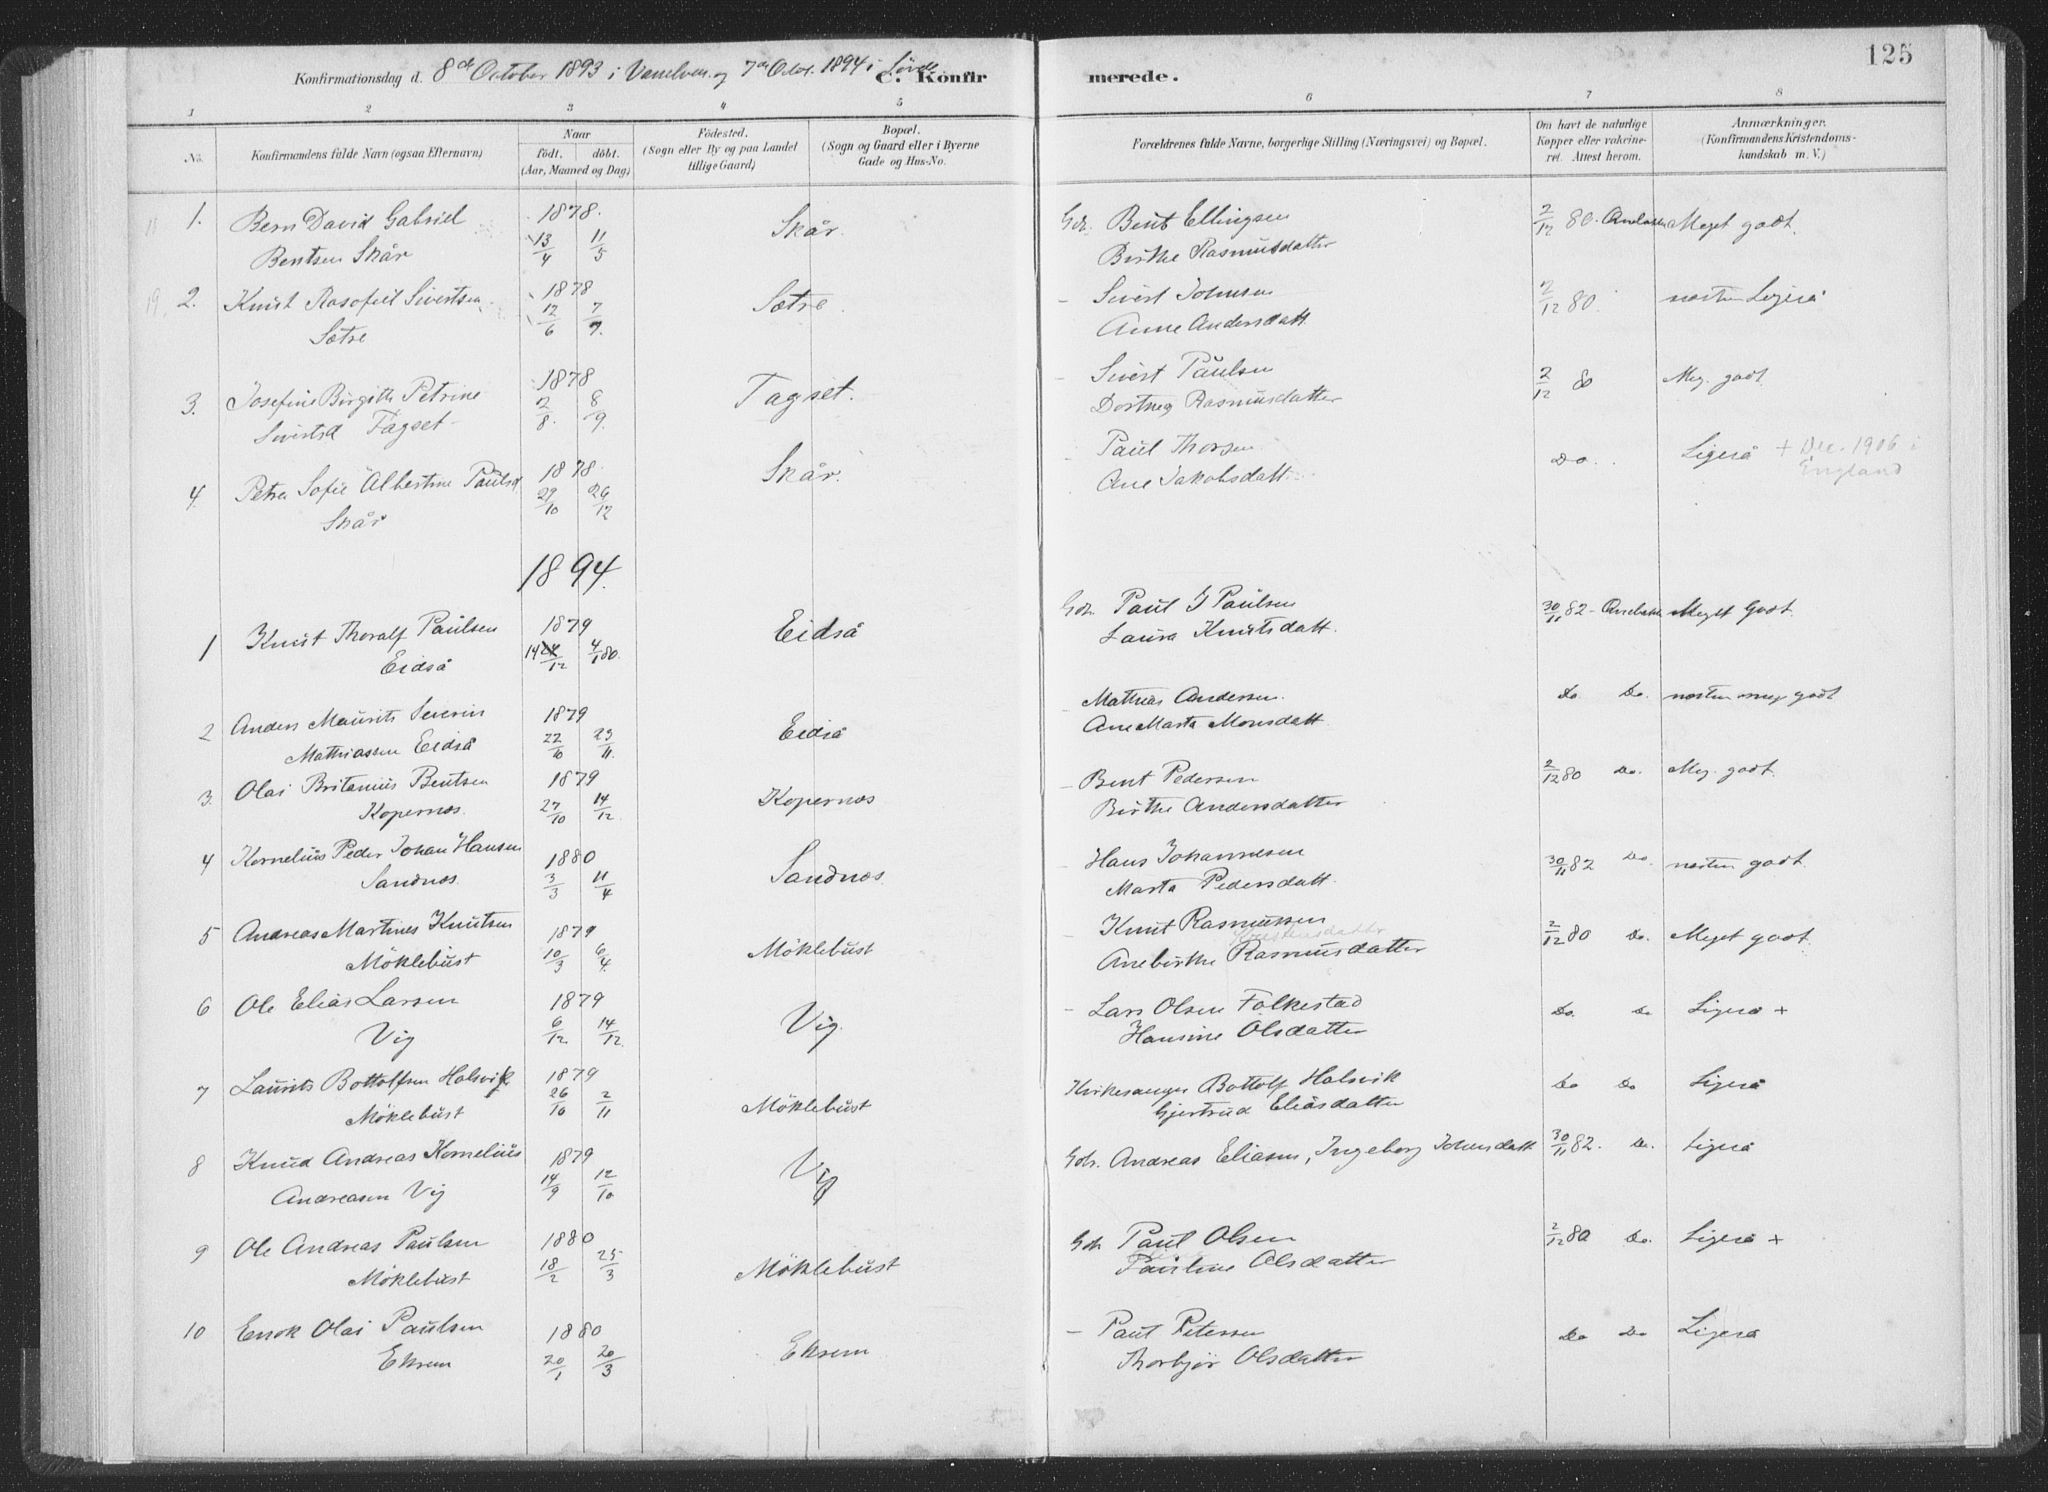 125
Konfirmationsdag d. 8de October 1893 i Vanelven og 7de Octbr. 1894 i Sövde
C. Konfirmerede.
1 2 3 4 5 6 7 8
No.
Konfirmandens fulde Navn (ogsaa Efternavn)
Naar
født. døbt.
(Aar, Maaned og Dag)
Fødested.
(Sogn eller By og paa Landet
tillige Gaard)
Bopæl.
(Sogn og Gaard eller i Byerne
Gade og Hus-No.
Forældrenes fulde Navne, borgerlige Stilling (Næringsvei) og Bopæl.
Om havt de naturlige
Kopper eller vakcine-
ret. Attest herom.
Anmærkninger.
(Konfirmandens Kristendoms-
kundskab m. V.)
1. Bern David Gabriel 1878. Skår. Gdr. Bent Ellingsen 2/12 80. Meget godt.
Bentsen Skår 13/4 11/5 Birthe Rasmusdatter
2. Knut Rasofiel Sivertsen 1878 Sætre - Sivert Johnsen 2/12 80. næsten Ligeså
Sætre 12/6 7/9. Anne Andersdatt.
3. Josefine Birgithe Petrine 1878 Tagset. - Sivert Paulsen 2/12 80 Meg. godt.
Sivertsd Tagset 2/8. 8/9. Dorthea Rasmusdatter
4. Petra Sofie Albertine Paulsd 1878. Skår. - Paul Thorsen Do. Ligeså + Dec. 1906 i England
Skår 29/10 26/12 Ane Jakobsdatt.
1894.
1 Knut Thoralf Paulsen 1879 Eidså Gdr. Paul J Paulsen 30/11 82 - Meget Godt.
Eidså 14/12 4/1 80. Laura Knutsdatt.
2 Anders Maurits Severin 1879 Eidså - Mathias Andersen. Do Do. næsten meg godt
Mathiassen Eidså 22/10 23/11. Ane Marta Monsdatt.
3. Olai Britanius Bentsen 1879 Kopernæs - Bent Pedersen 2/12 80 Do. Meg. godt.
Kopernæs. 27/10 14/12 Birthe Andersdatter
4 Kornelius Peder Johan Hansen 1880 Sandnæs. - Hans Johannesen 30/11 82 Do. næsten godt.
Sandnæs. 3/3 11/4 Marta Pedersdatt.
5 Andreas Martines Knutsen 1879 Möklebust - Knut Rasmussen 2/12 80 Do. Meget godt.
Möklebust 10/3 6/4. Anebirthe Rasmusdatter
6 Ole Elias Larsen 1879 Vig. - Lars Olsen Folkestad Do. Do Ligeså +
Vig 6/12 14/12. Hansine Olsdatter
7 Laurits Bottolfsen Halsvik 1879 Möklebust Kirkesanger Bottolf Halsvik Do Do Ligeså
Möklebust 26/10 2/11 Gjertrud Eliasdatter
8 Knud Andreas Kornelius 1879 Vig Gdr. Andreas Eliasen, Ingeborg Johnsdatt. 30/11 82. Do. Ligeså
Andreasen Vig 14/9 12/10
9 Ole Andreas Paulsen 1880 Möklebust Gdr Paul Olsen 2/12 80 Do. Ligeså +
Möklebust 18/2 25/3 Pauline Olsdatter
10 Enok Olai Paulsen 1880 Ekrem - Paul Petersen Do Do Ligeså
Ekrem 20/1 20/3 Thorbjør Olsdatter